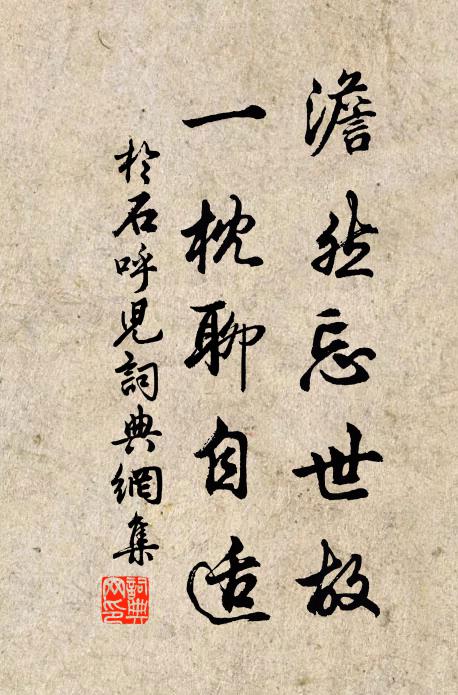 澹然忘世故
一枕聊自适
於石呼児詞典網集
詞典
网印